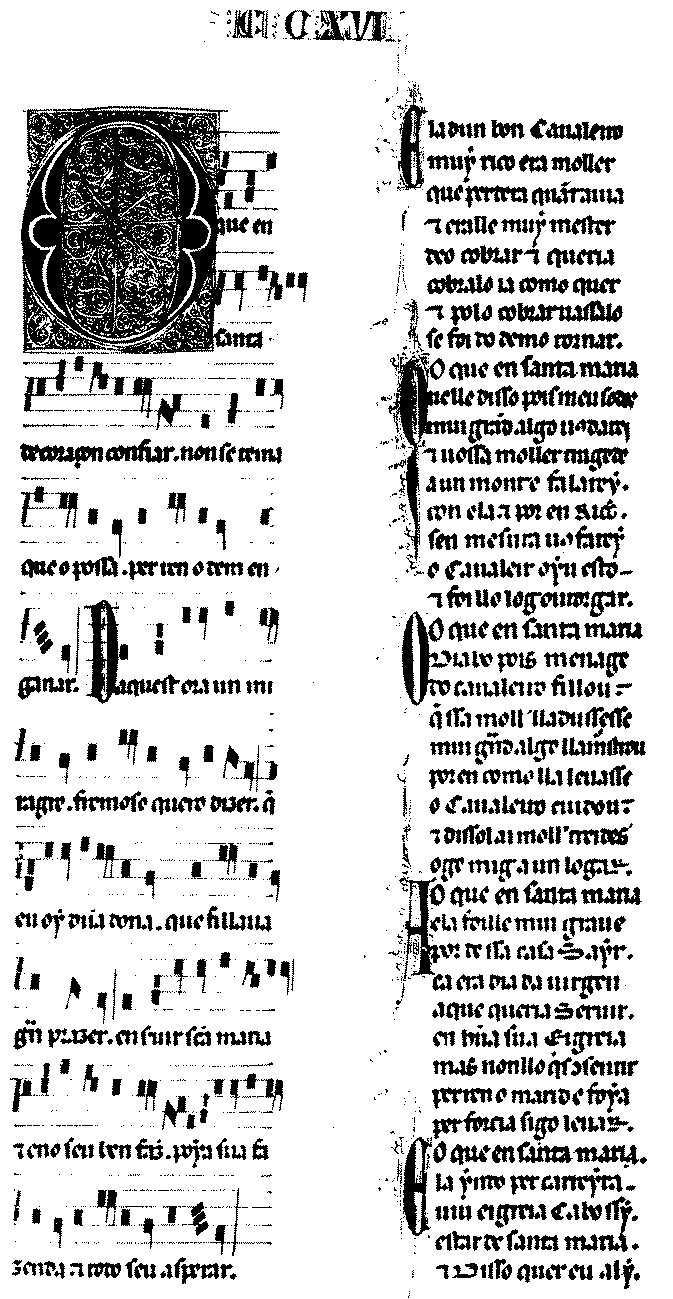 CCXVI
O que en
santa
de coraçon confiar. non se tema
que o possa. per ren o dem en
ganar. Daquest era un mi
ragre. fremoso quero dizer. q̃
eu oỹ dũa dona. que fillaua
gñ prazer. en seruir scã maria
⁊ eno seu ben faz. poỹa sua fa
zenda ⁊ todo seu asperar.
Ela dun bon Caualeiro
muỹ rico era moller
que perdera quãt auia
⁊ eralle muỹ mester
deo cobrar ⁊ queria
cobralo ia como quer
⁊ polo cobrar uassalo
se foi do demo tornar.
O que en santa maria
elle disso pois meu sode
mui grãd algo uᵒ darei
⁊ uossa moller
a un monte falarey.
con ela ⁊ por en
sen mesura uᵒ farey
o Caualeir oỹu esto
⁊ foi llo log outorgar.
O que en santa maria
Diabo pois menage
do caualeiro fillou
q̃ ssa moll' lladussesse
mui gñd. algo
por en como lla leuasse
o Caualeiro cuidou
⁊ dissol ai moll'
oge mig a un logar.
O que en santa maria
Ela foille mui graue
por de ssa casa Sayr.
ca era dia da uirgen
a que queria Seruir.
en hũa sua Eigreia
mas nonllo
per ren o marid e foỹa
per forcia sigo leuar.
O que en santa maria.
E la ỹndo per carreyra.
uiu eigreia Cabo ssỹ.
estar de santa maria.
⁊ Disso quer eu alỹ.